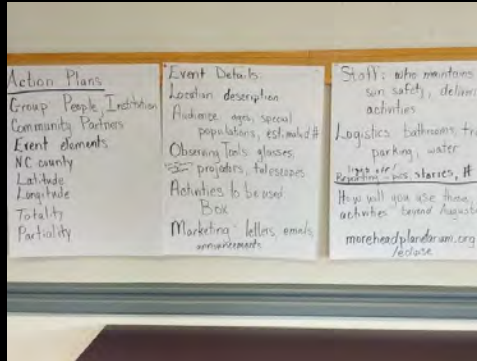 Action Plans
Group People, Institution
Community Partners
Event elements
NC county
Latitude
Longitude
Totality
Partiality
Event Details:
Location description
Audience ages, special
populations, estimated #
Observing Tools: glasses,
projectors, telescopes
Activities to be used
Box
Marketing: letters, emails,
announcements
Staff: who maintains
sun safety, deliver
activities
Logistics bathrooms, tra
parking, water
Reporting - pics, stories, #
How will you use these
activities beyond August
moreheadplanetarium.org
/eclipse